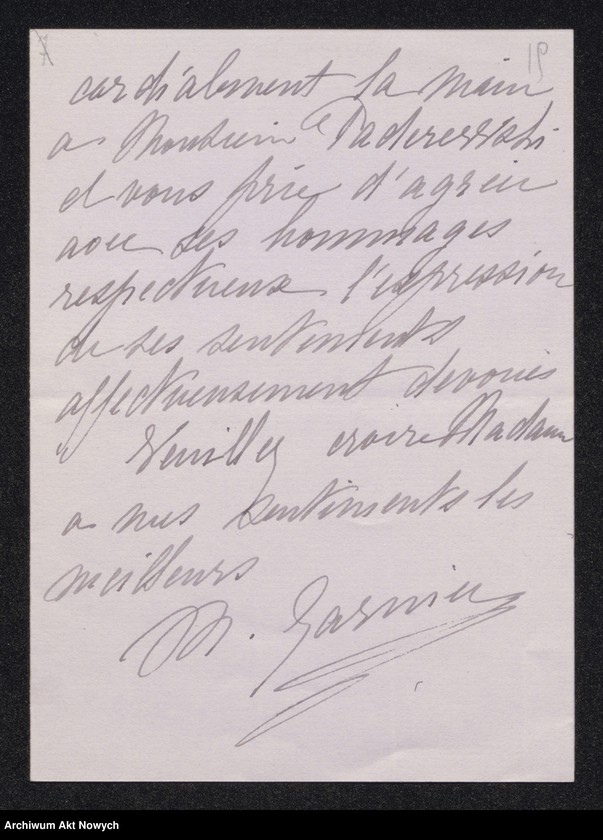 19
cordialement la main
a Monsieur Paderewski
et vous prie d'agréer
avec ses hommages
respectueux l'expression
de ses sentiments
affectueusement devoués
Veuillez croire Madame
a mes sentiments les
meilleurs
M. Garnier
Archiwum Akt Nowych